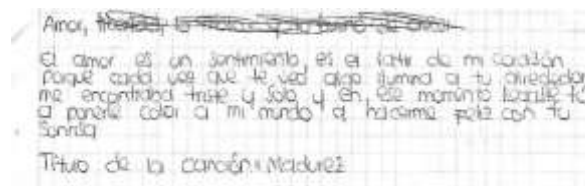 Amor,
El amor es un sentimiento, es el latir de mi corazón
porque cada vez que te veo algo ilumina a tu alrededor
me encontraba triste y solo y en ese momento llegaste tú
a ponerle color a mi mundo a hacerme feliz con tu
sonrisa
Titulo de la canción: Madurez